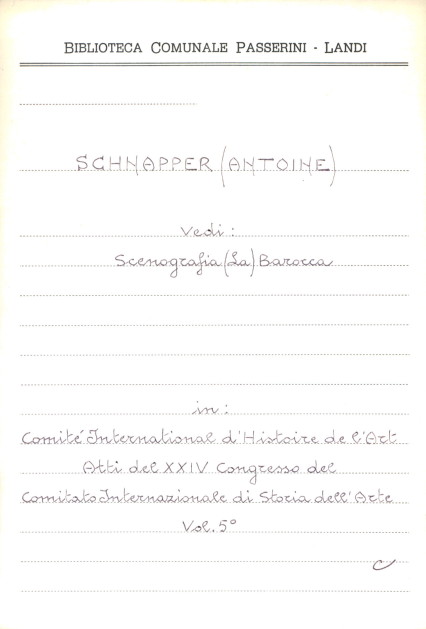 BIBLIOTECA COMUNALE PASSERINI - LANDI
SCHNAPPER (ANTOINE)
Vedi:
Scenografia (La) Barocca
in:
Comité International d'Histoire de l'Art
Atti del XXIV Congresso del
Comitato Internazionale di Storia dell'Arte
Vol. 5°
C